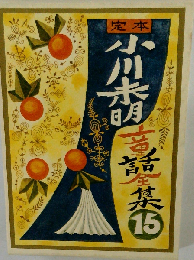 定本
小川未明
童話全集
15